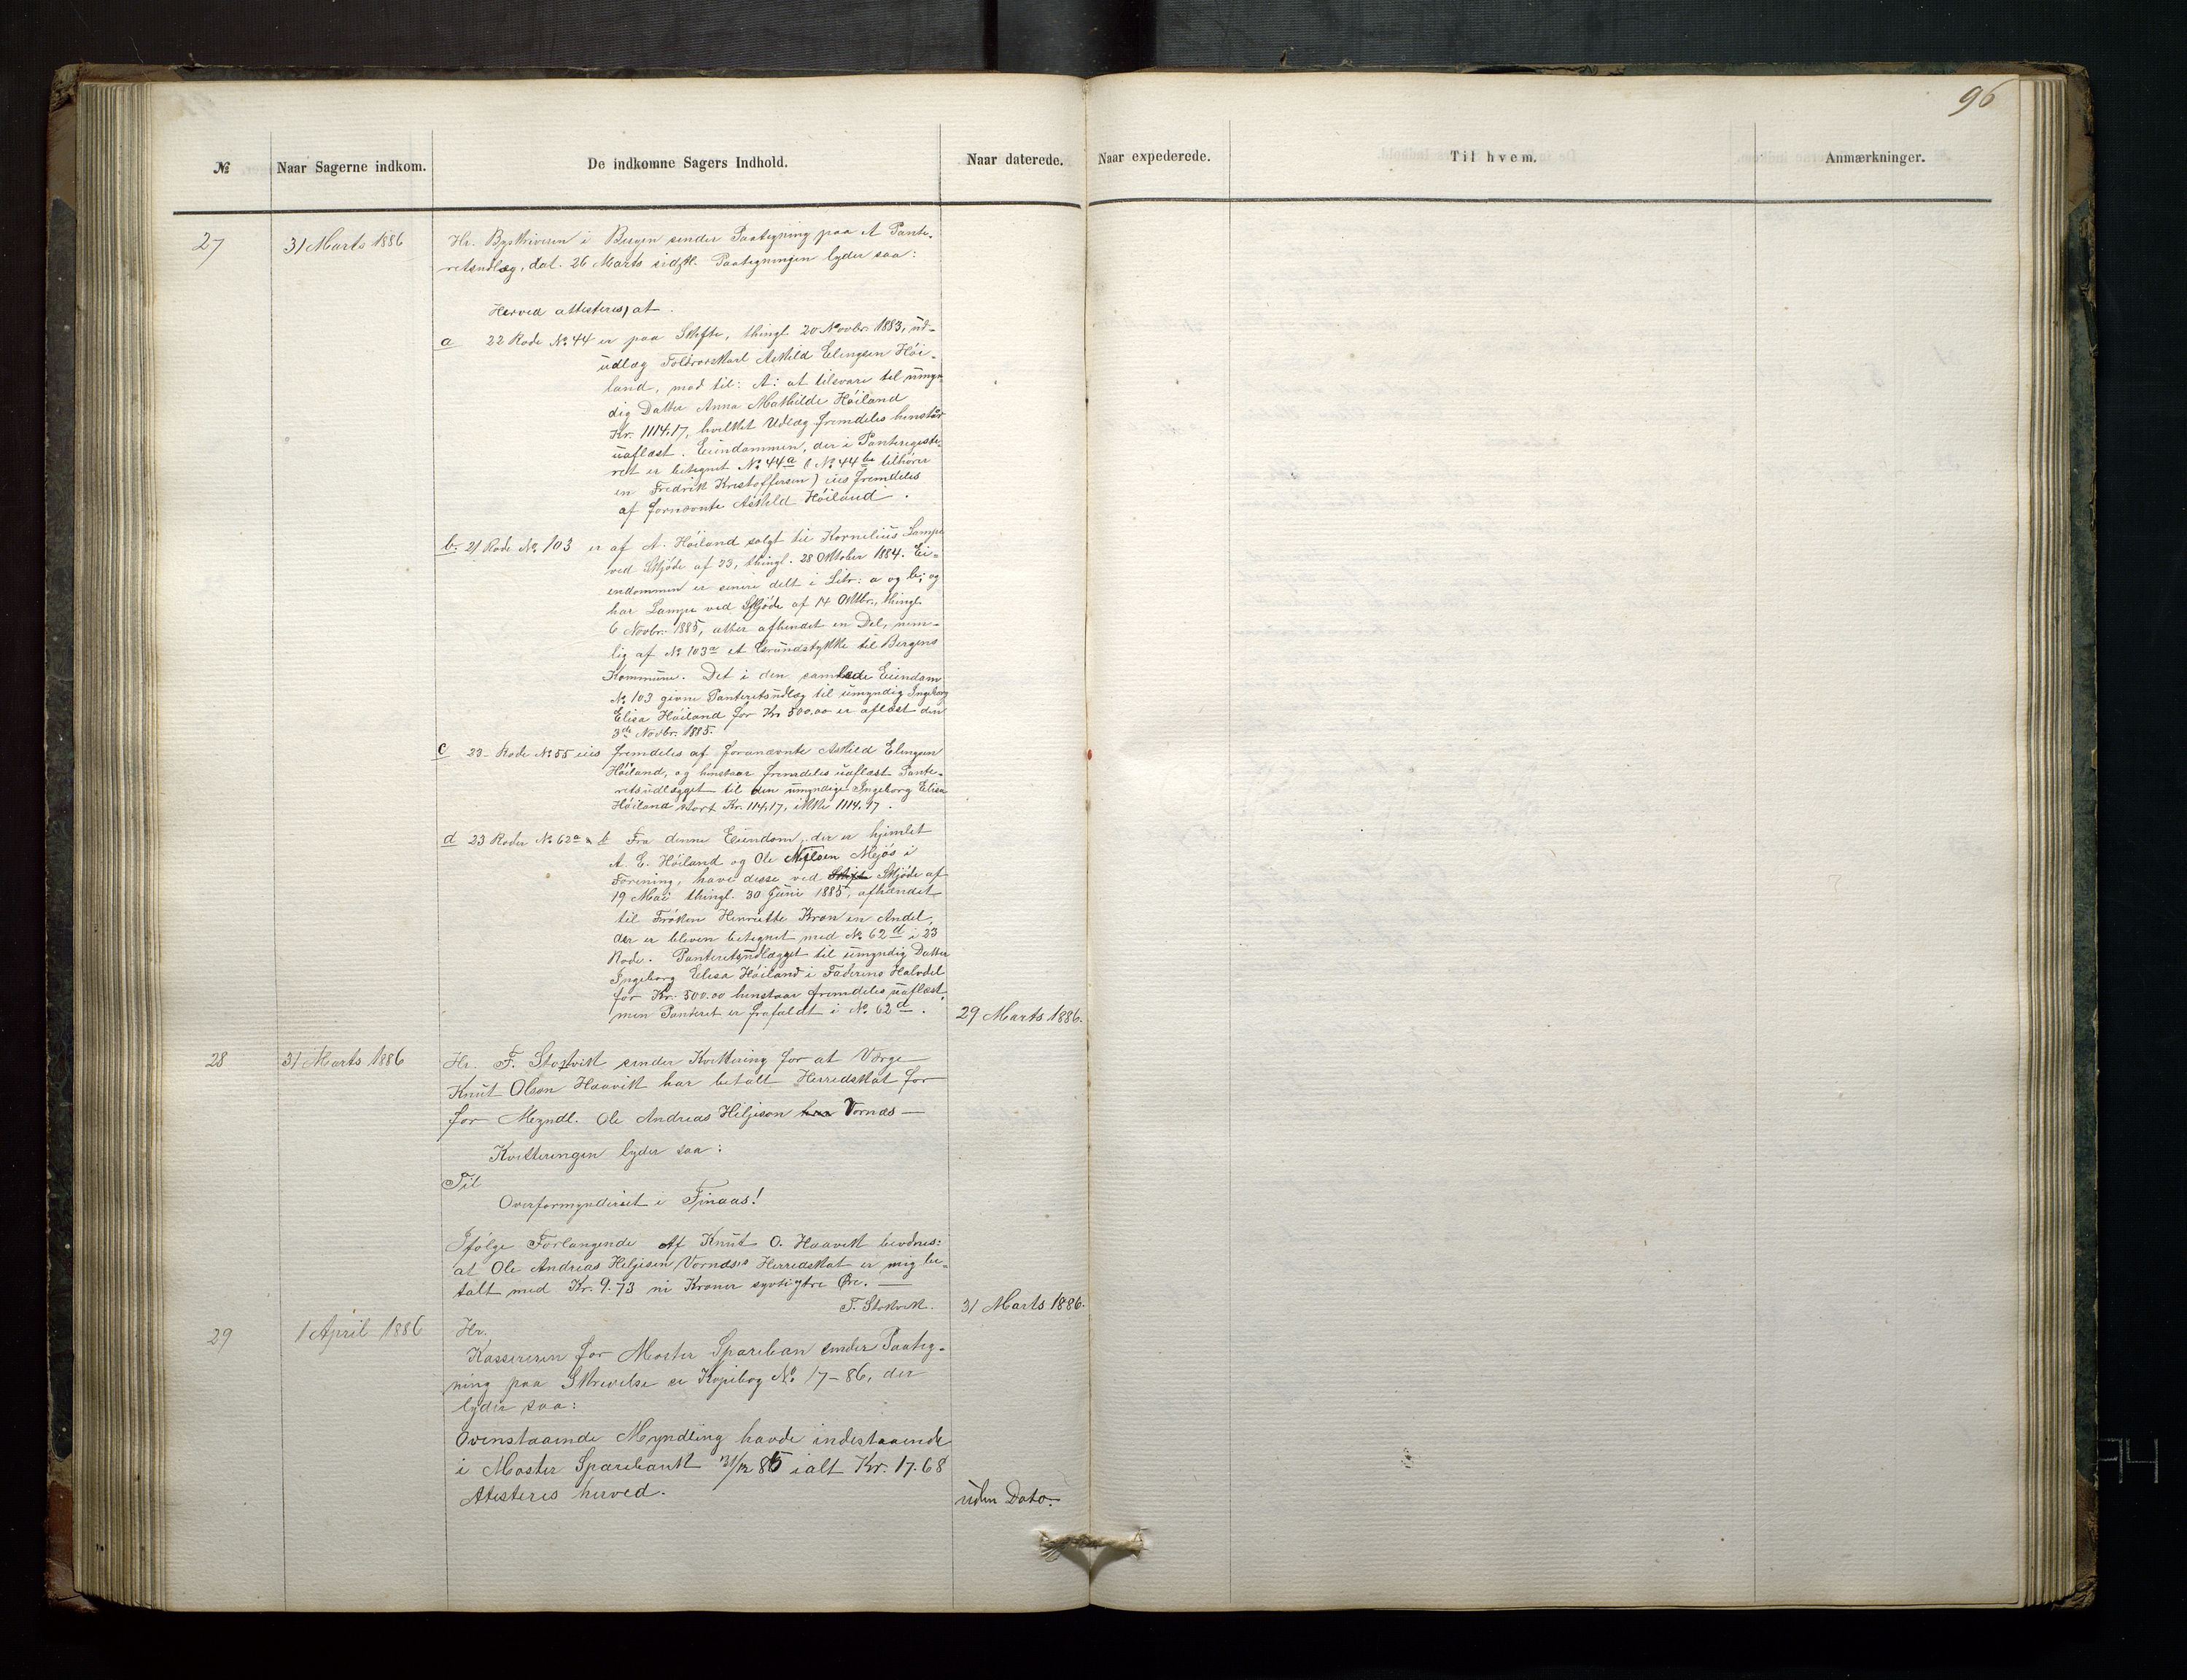 96
№ Naar Sagerne indkom. De indkomne Sagers Indhold. Naar daterede. Naar expederede. Til hvem. Anmærkninger.
27 31 Marts 1886 Hr. Byskriveren i Bergen sender Paategning paa et Pante-
retsudlæg, dat. 26 Marts sidstl. Paategningen lyder saa:
Herved attesteres, at
a 22 Rode No. 44 er paa Skifte, thingl. 20 Novbr. 1883, ud-
udlæg Askild Elingsen Höi-
land, mod til: A: at tilsvare til umyn-
dig Datter Anna Mathilde Höiland
Kr. 1114,17, hvilket Udlæg fremdeles henstår
uaflæst. Eiendommen, der i Panteregiste-
ret er betegnet No. 44a (No. 44b tilhører
en Fredrik Kristoffersen) eies fremdeles
af fornævnte Askild Höiland.
b. 21 Rode No. 103 er af A. Höiland solgt til Kornelius Lampe
ved Skjöde af 23, thingl. 28 Oktober 1884. Ei-
endommen er senere delt i Litr: a og b; og
har Lampe ved Skjöde af 14 Oktbr., thingl.
6 Novbr. 1885, atter afhendet en Del, nem-
lig af No. 103a et Grundstykke til Bergens
Kommune. Det i den samlede Eiendom
No. 103 givne Panteretsudlæg til umyndig Ingeborg
Elisa Höiland for Kr 500.00 er aflæst den
3de Novbr. 1885.
c 23- Rode No. 55 eies fremdeles af fornævnte Askild Elingsen
Höiland, og henstaar fremdeles uaflæst Pante-
retsudlægget til den umyndige Ingeborg Elisa
Höiland stort Kr. 114,17, ikke 1114.97.
d 23 Rodes No. 62a & b Fra denne Eiendom, der er hjemlet
A. E. Höiland og Ole Nilsen Mjös i
Forening, have disse ved Skifte Skjöde af
19 Mai thingl. 30 Juni 1885, afhændet
til Fröken Henriette Kron en Andel,
der er bleven betegnet med No. 62d i 23
Rode. Panteretsudlægget til umyndig Datter
Ingeborg Elisa Höiland i Faderens Halvdel
for Kr. 500.00 henstaar fremdeles uaflæst,
men Panteret er frafaldt i No. 62d. 29 Marts 1886.
28 31 Marts 1886 Hr. F. Stokvik sender Kvittering for at Værge
Knut Olson Haavik har betalt Herredskat for
for Myndl. Ole Andreas Hiljeson Vornæs —
Kvitteringen lyder saa:
Til
Overformynderiet i Finaas!
Ifølge Forlangende af Knut O. Haavik bevidnes:
at Ole Andreas Heljesen Vornæs's Herredskat er mig be-
talt med Kr. 9.73 ni Kroner syvtigtre Øre. —
F. Stokvik. 31 Marts 1886.
29 1 April 1886 Hr.
Kassereren for Moster Spareban sender Paateg-
ning paa Skrivelse se Kopibog No. 17-86, der
lyder saa:
Ovenstaaende Myndling havde indestaaende
i Moster Sparebank 31/12 85 ialt Kr. 17.68
Atesteres herved. uden Dato.